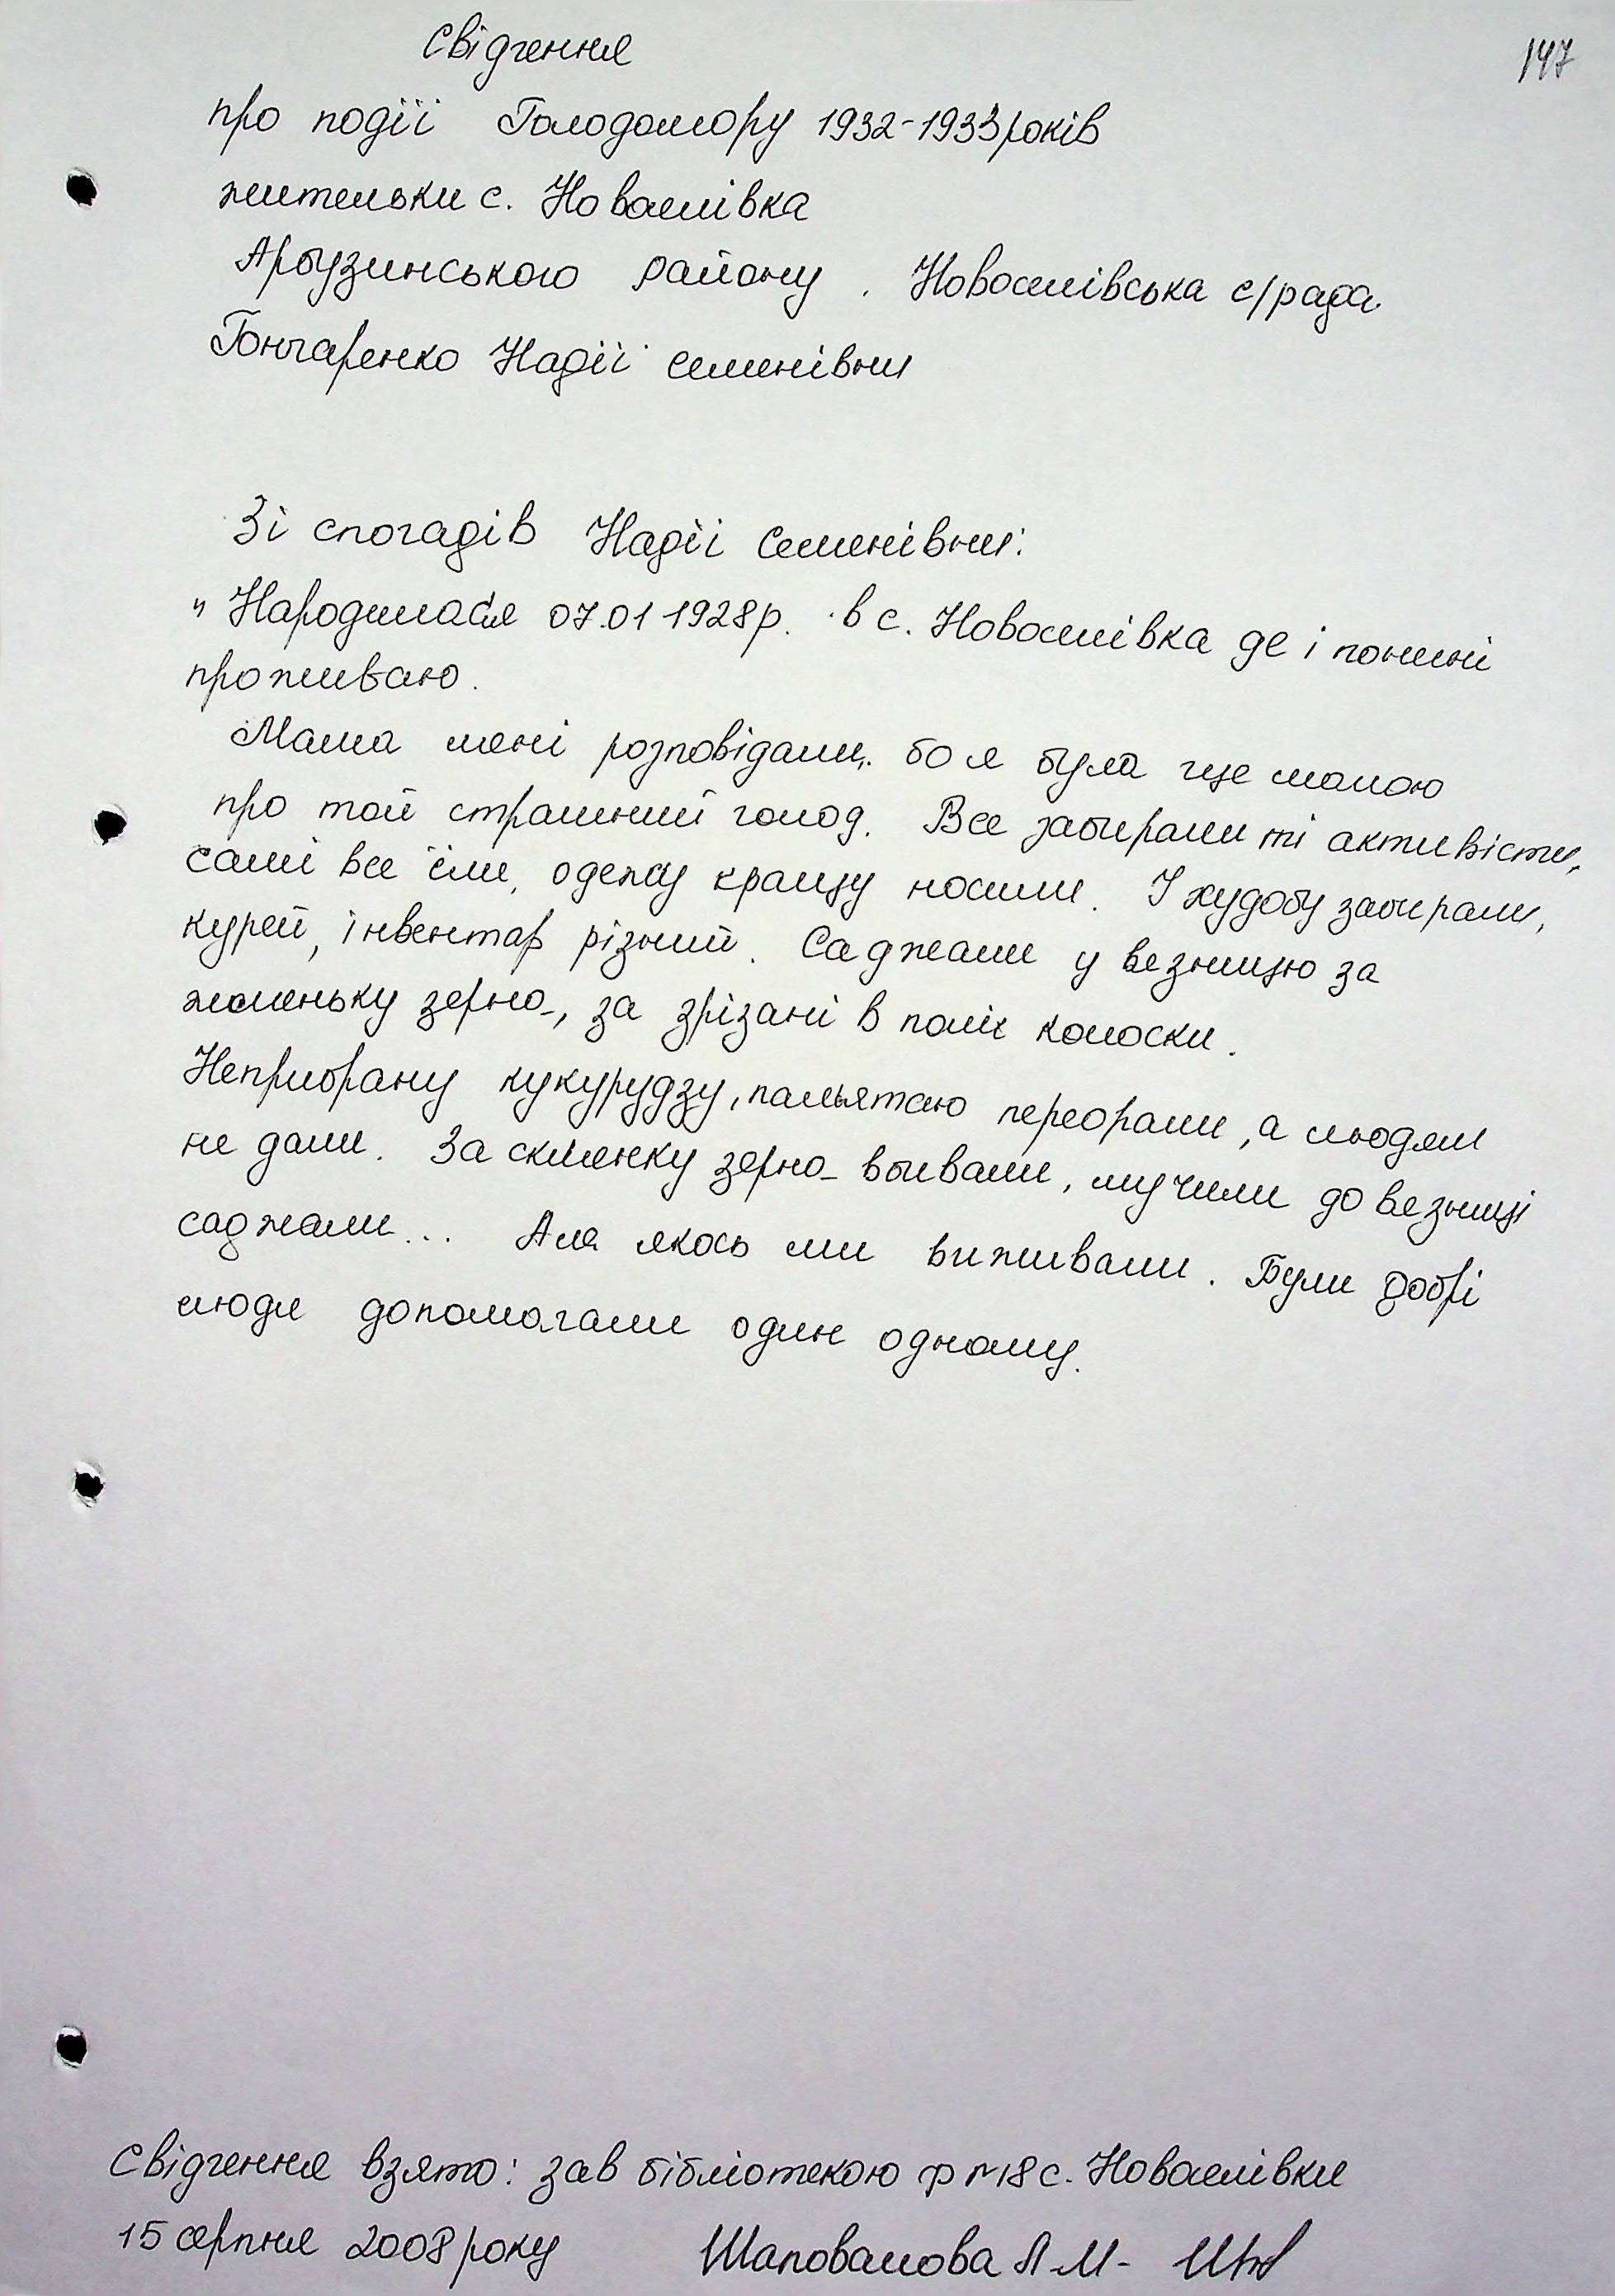 147
Свідчення
про події Голодомору 1932-1933 років
жительки с. Новоселівка
Арбузинського району. Новоселівська с/рада
Гончаренко Надії Семенівни
Зі спогадів Надії Семенівни:
"Народилася 07.01 1928р. в с. Новоселівка де і понині
проживаю.
Мама мені розповідали, бо я була ще малою
про той страшний голод. Все забирали ті активісти,
самі все їли, одежу кращу носили. І худобу забирали,
курей, інвентар різний. Саджали у вязницю за
жменьку зерна, за зрізані в полі колоски.
Неприбрану кукурудзу, памьятаю переорали, а людям
не дали. За склянку зерна вбивали, мучили до вязниці
саджали... Але якось ми виживали. Були добрі
люди допомагали один одному.
Свідчення взято: зав бібліотекою ф №18 с. Новоселівки
15 серпня 2008 року Шаповалова Л М-